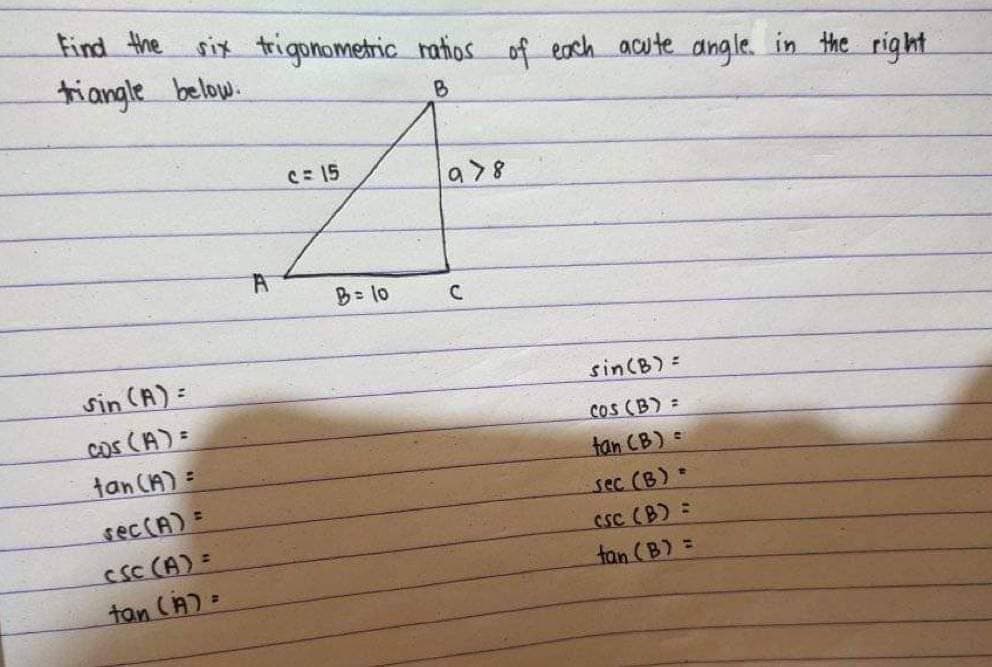 Find the six trigonometric ratios of each acute angle. in the right
triangle below.
B
c = 15
a > 8
A
B = 10
C
sin (A) =
cos (A) =
tan (A) =
sec (A) =
csc (A) =
tan (A) =
sin (B) =
cos (B) =
tan (B) =
sec (B) =
csc (B) =
tan (B) =